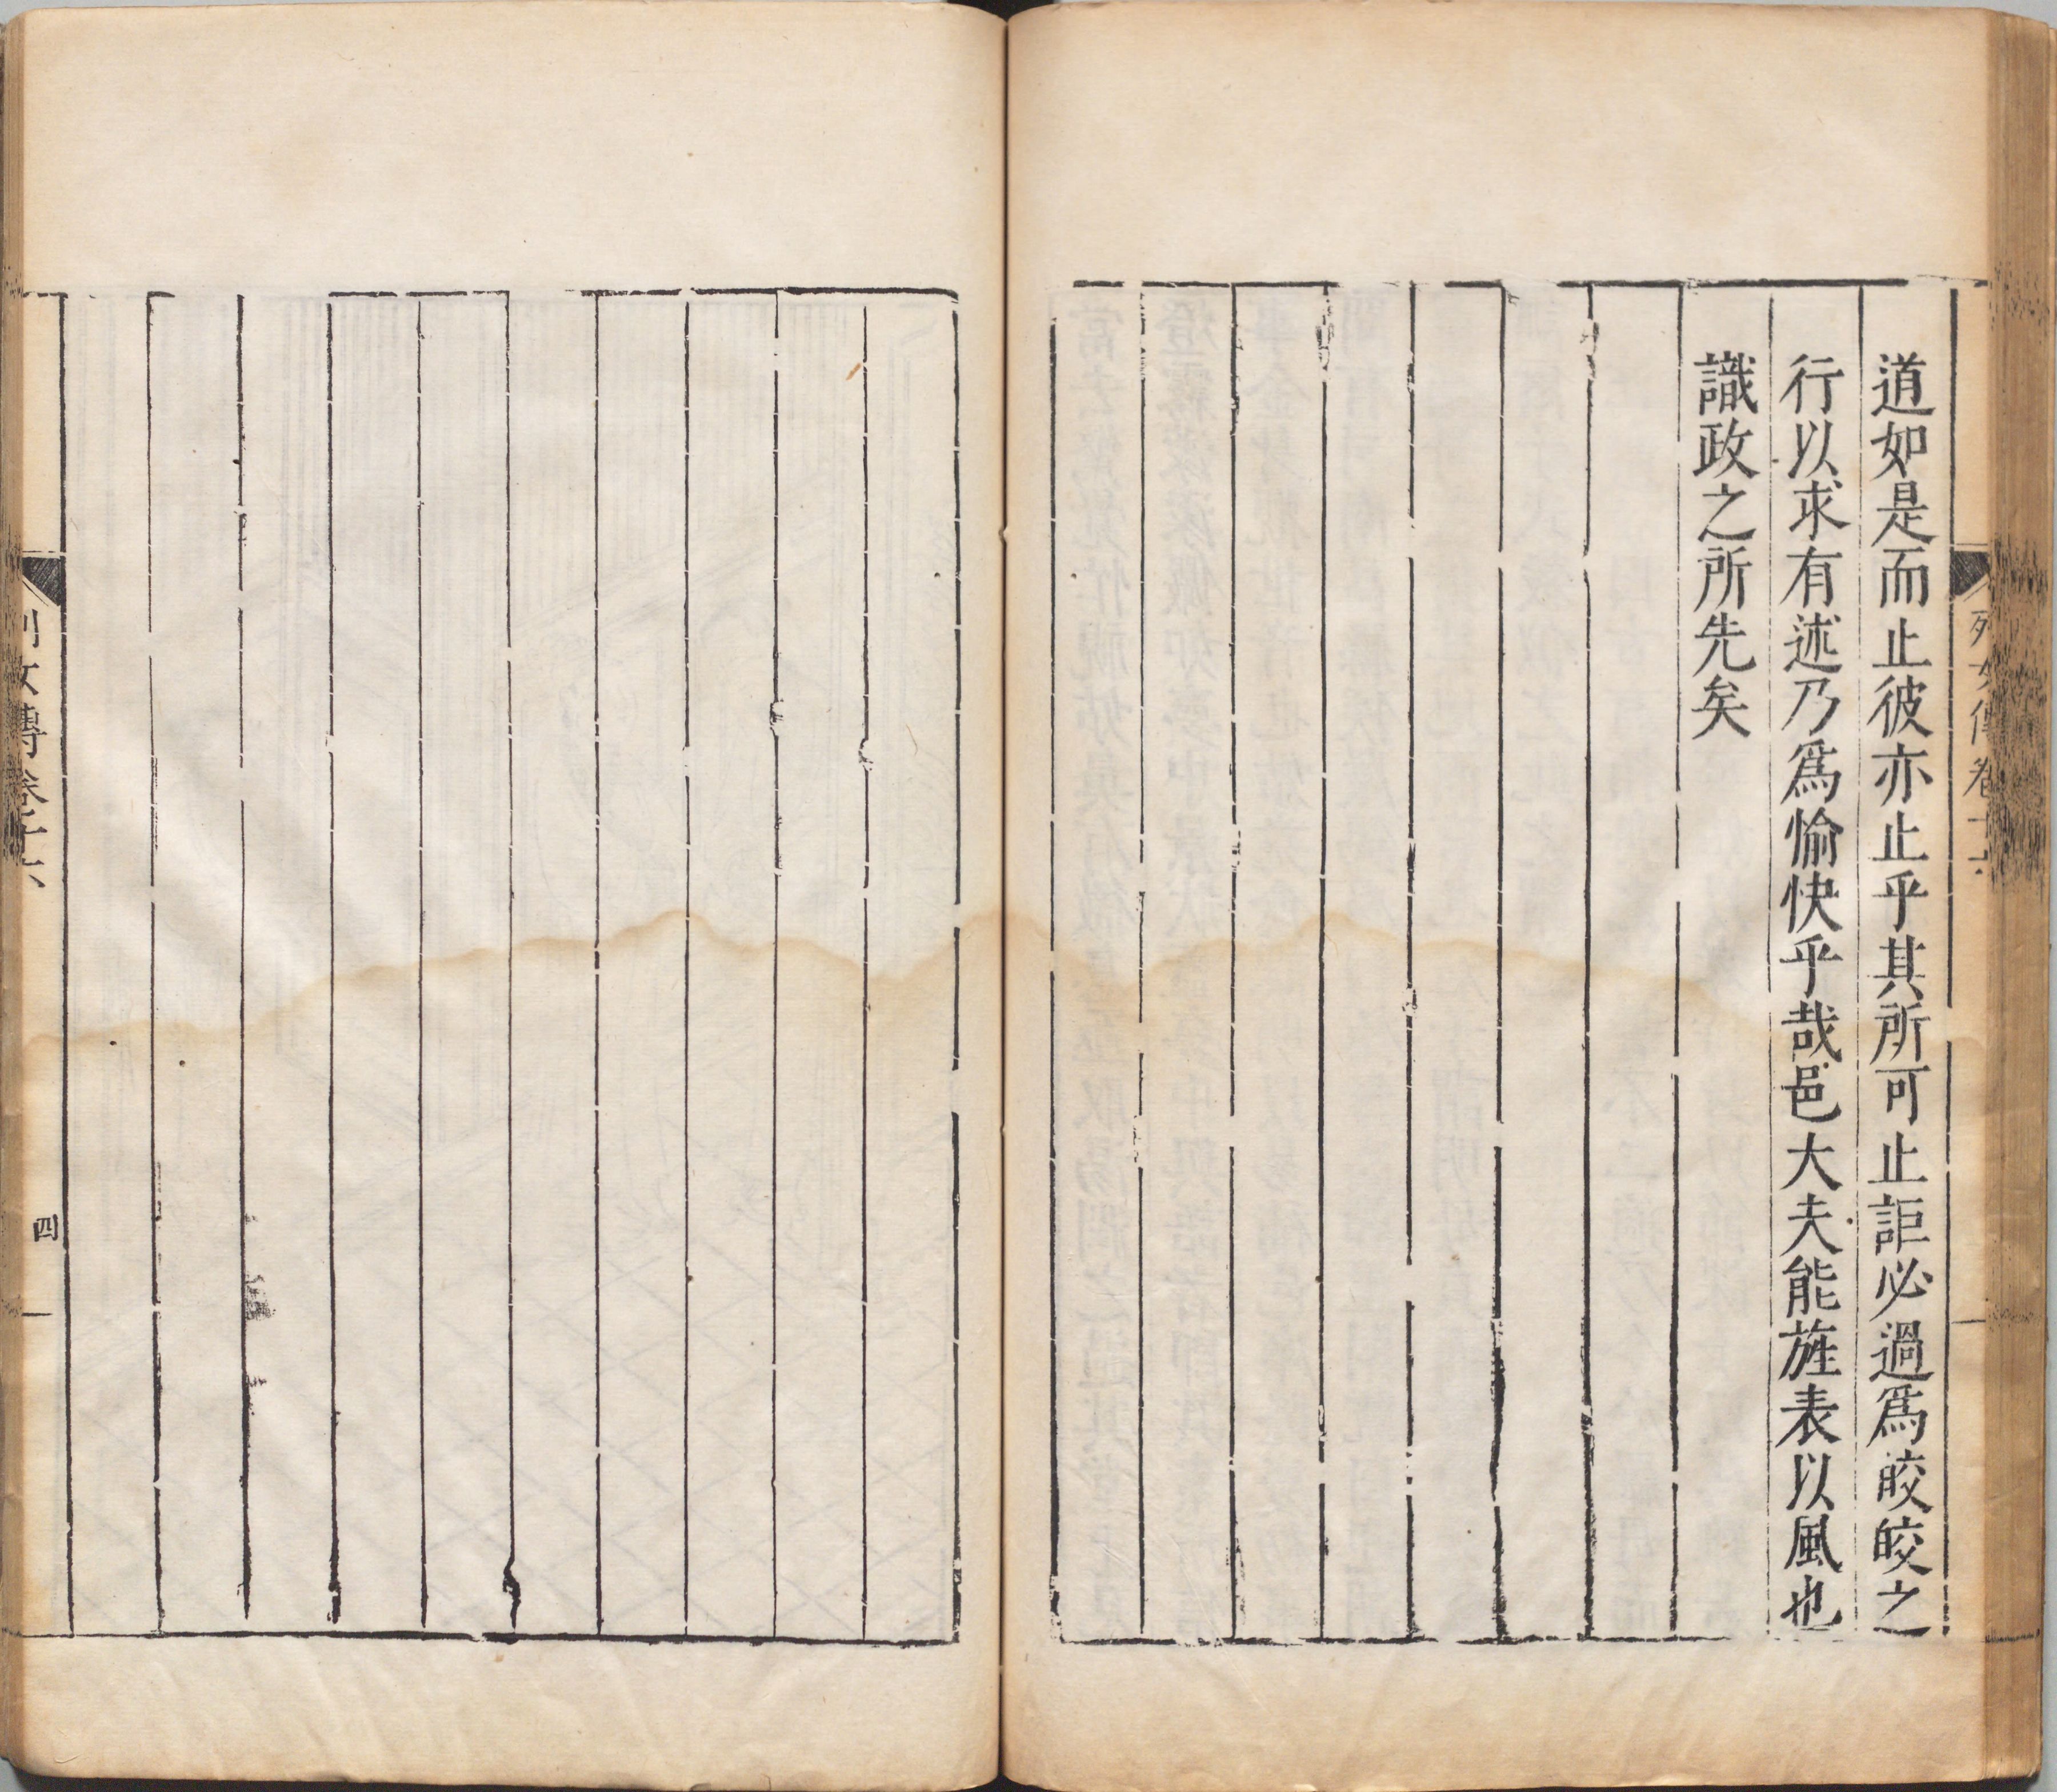 道如是而止彼亦止乎其所可止詎必過爲皎皎之
行以求有述乃爲愉快乎哉邑大夫能旌表以風也
識政之所先矣
列女傳卷十六
列女傳卷十六
四